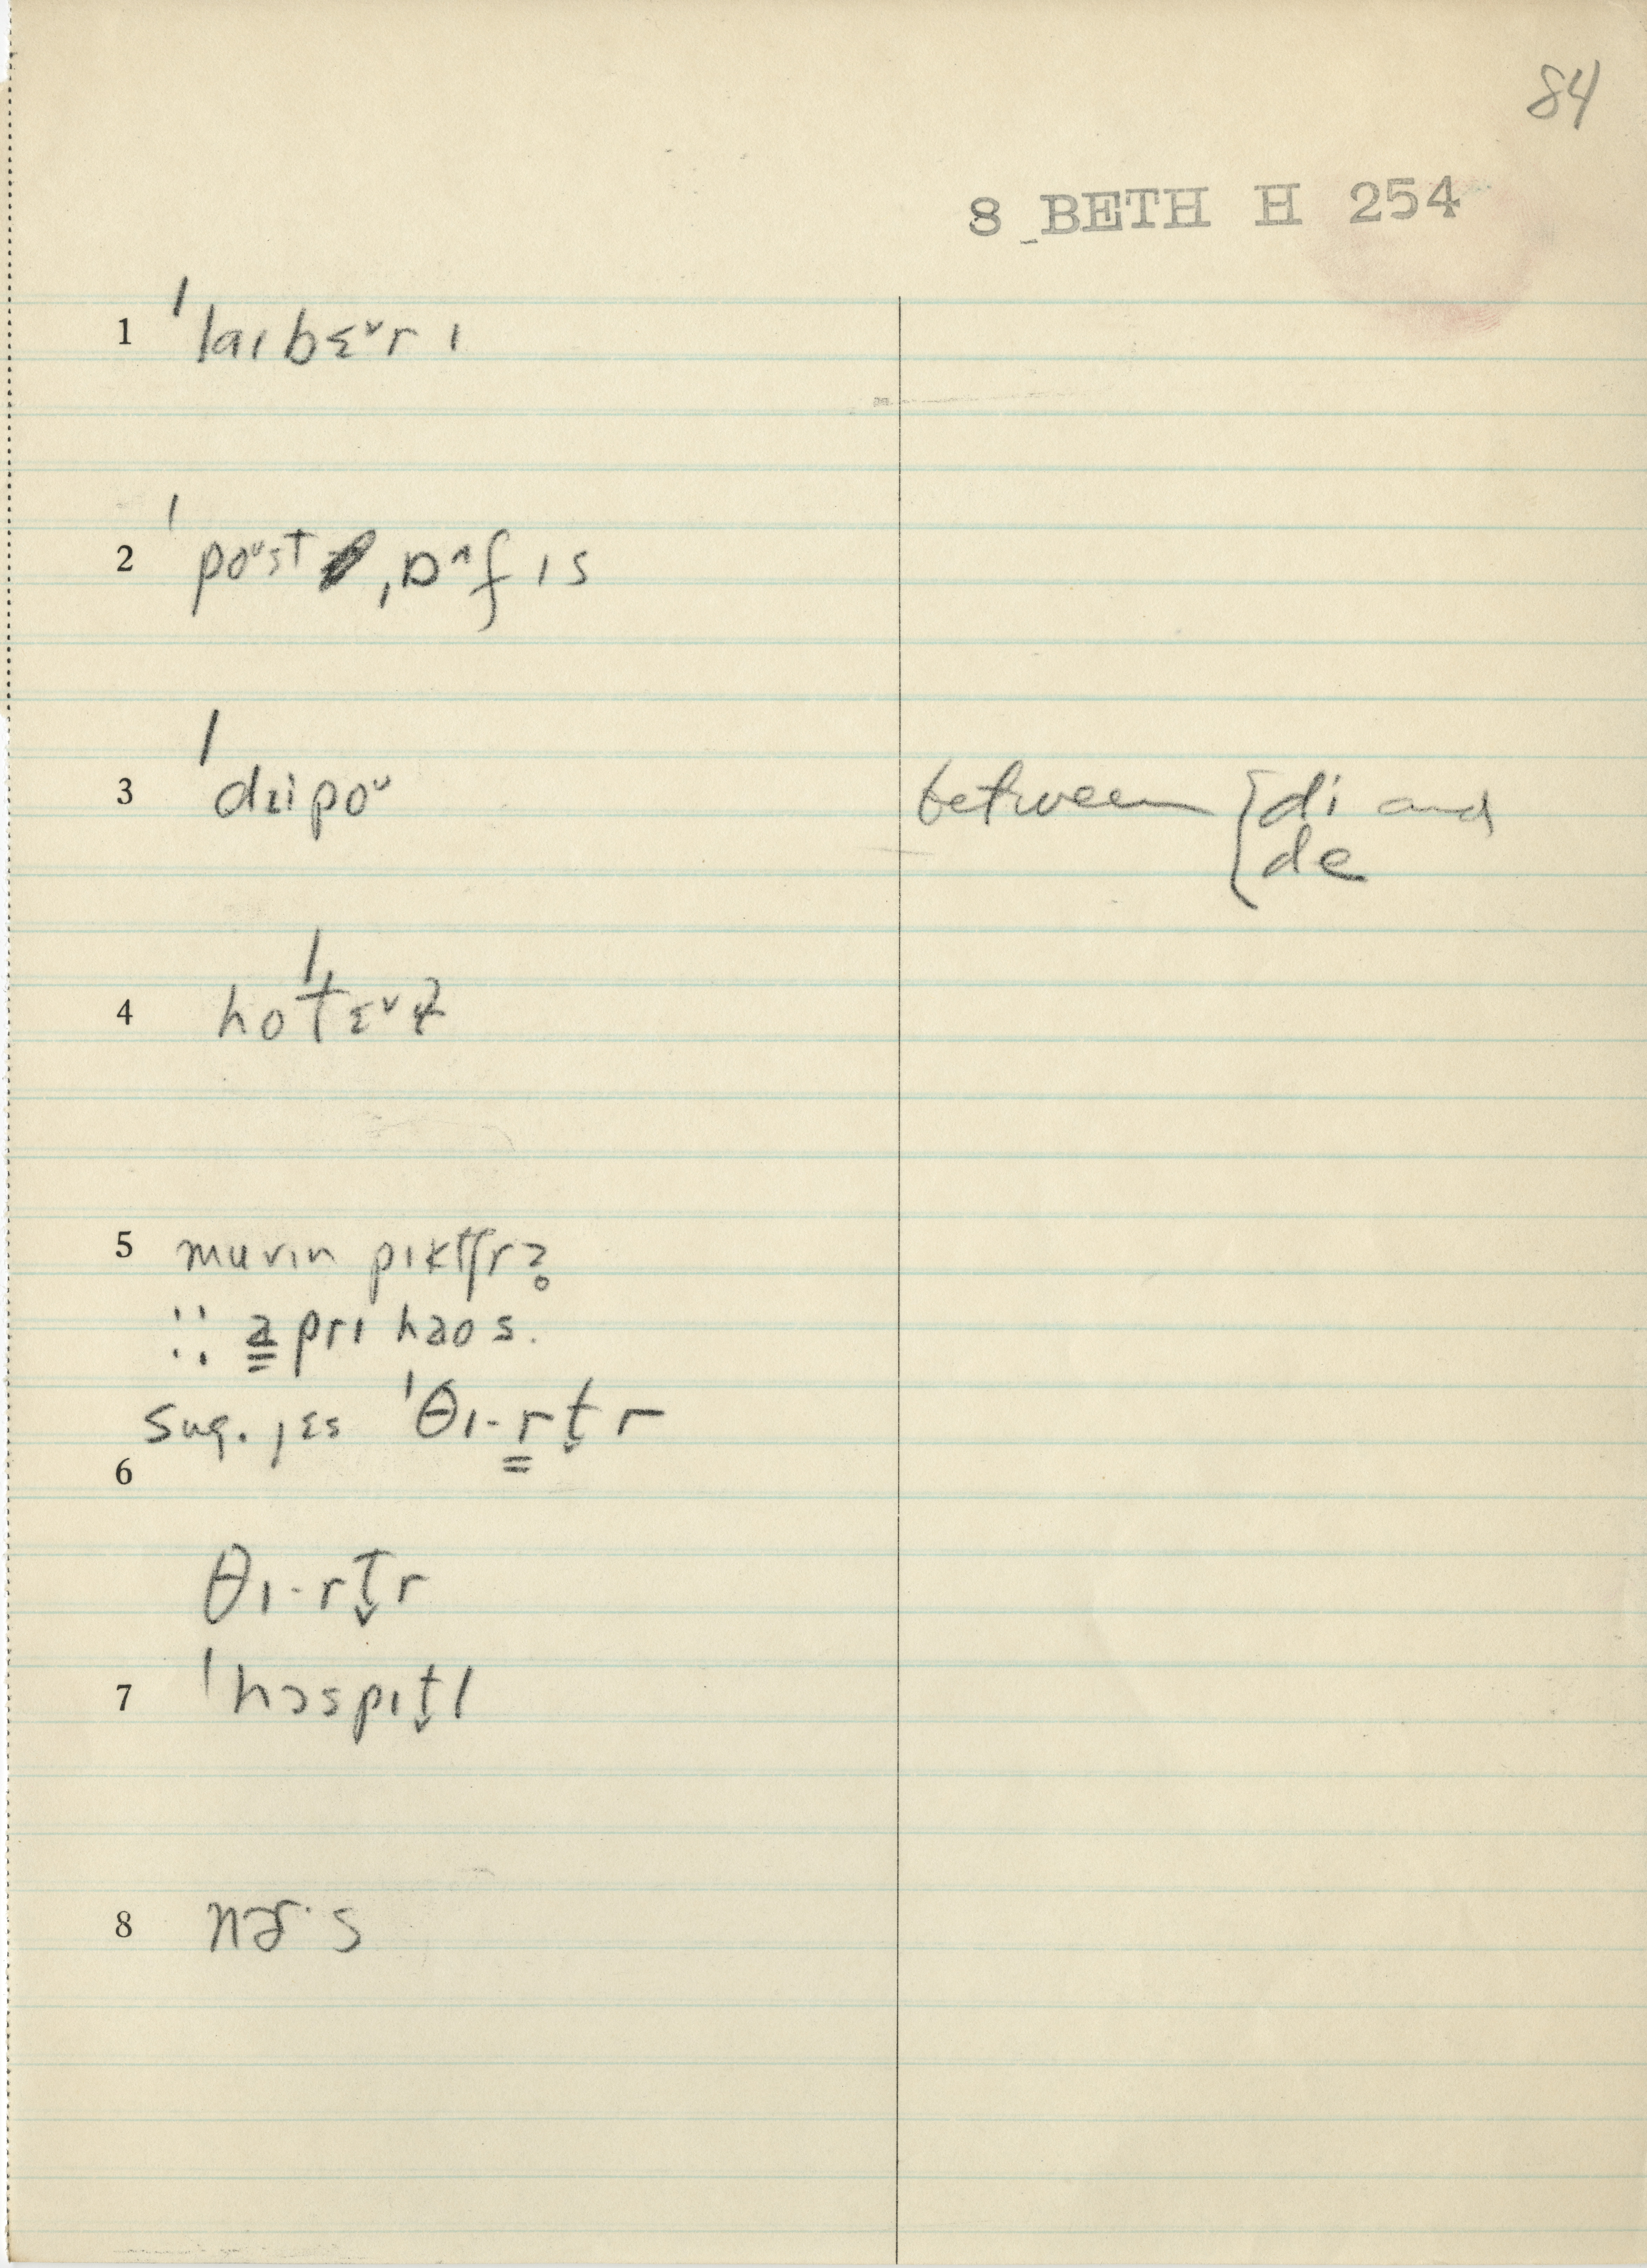 84
8 BETH H 254
1 ˈlaɪbɛ˅rɪ
2 ˈpoᶷst ˌɒ^fɪs
3 ˈdɪipoᶷ between {di and
de
4 hoˈtɛ˅ɫ
5 muvin pɪktʃr?
∴ a prɪ haos.
sug. jɛs ˈθɪ·rt̬r
6
θɪ·rt̬r
7 ˈhɔspɪt̬l
8 nɚ·s